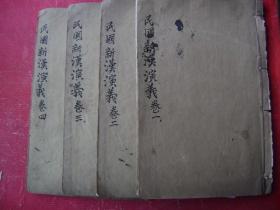 民國新漢演義卷一
民國新漢演義卷二
民國新漢演義卷三
民國新漢演義卷四